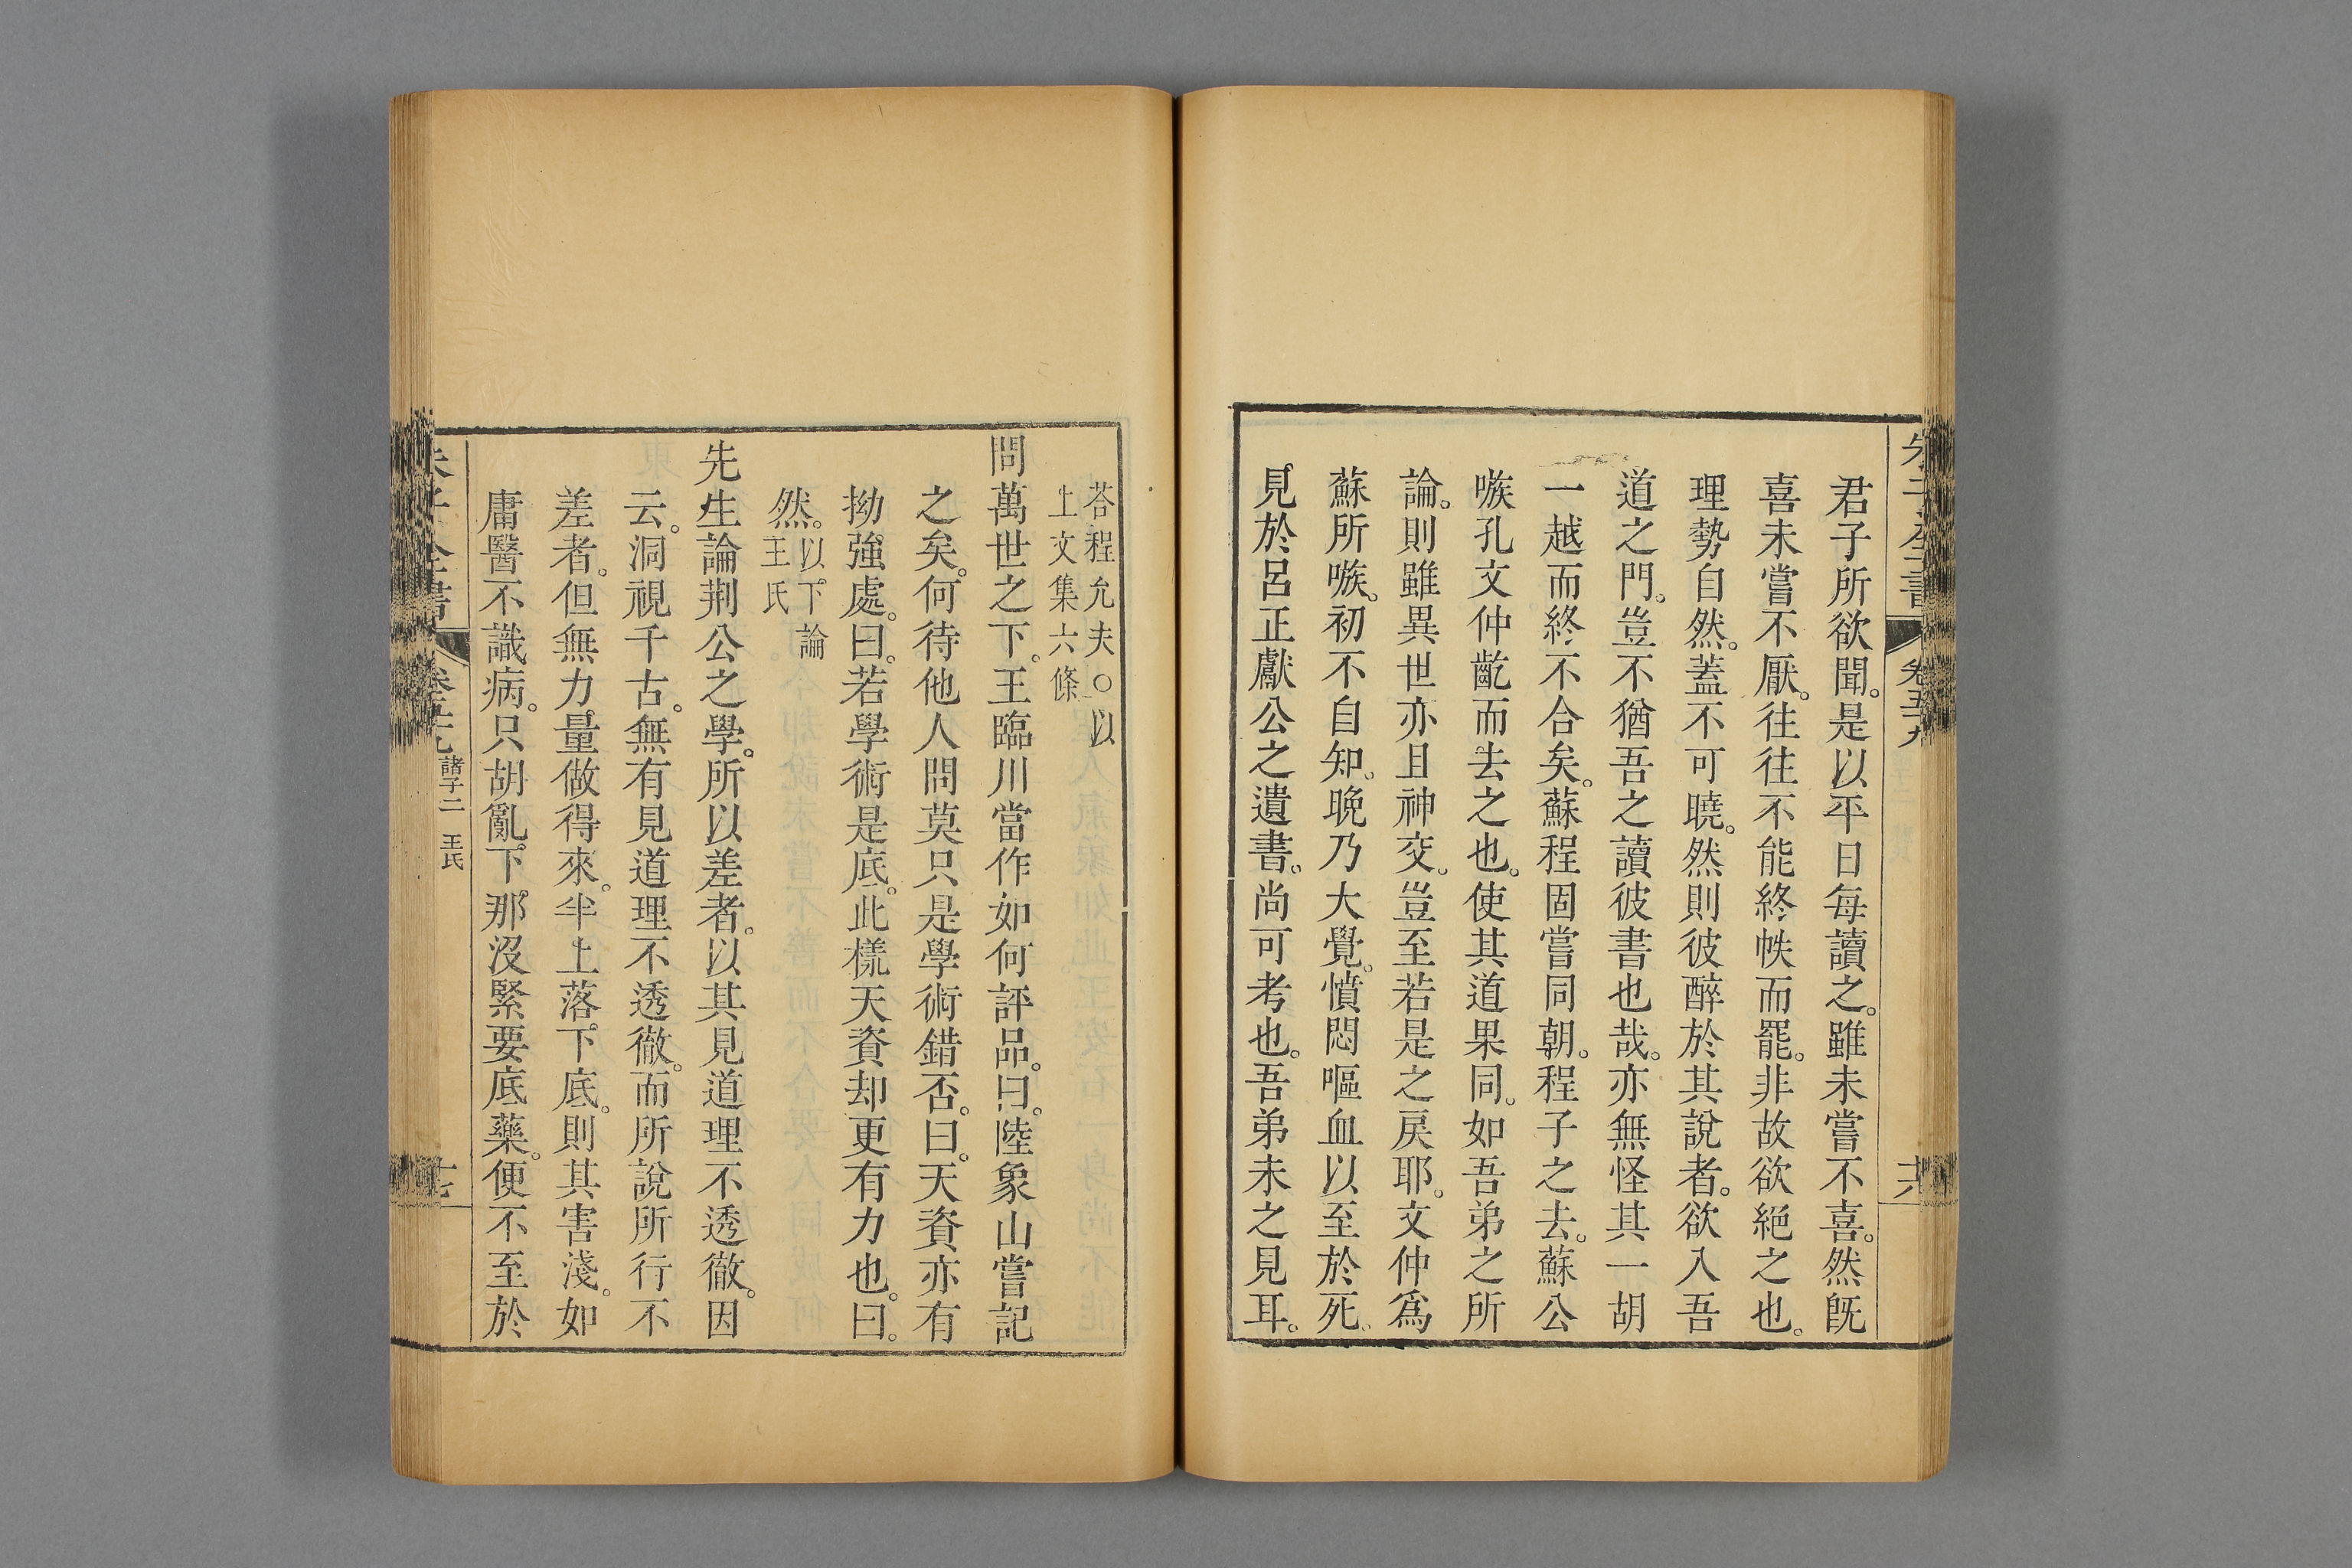 君子所欲聞。是以平日每讀之。雖未嘗不喜。然既
喜未嘗不厭。往往不能終帙而罷。非故欲絕之也。
理勢自然。蓋不可曉。然則彼醉於其說者。欲入吾
道之門。豈不猶吾之讀彼書也哉。亦無怪其一胡
一越而終不合矣。蘇程固嘗同朝。程子之去。蘇公
嗾孔文仲齕而去之也。使其道果同。如吾弟之所
論。則雖異世亦且神交。豈至若是之戾耶。文仲為
蘇所嗾。初不自知。晚乃大覺。憤悶嘔血以至於死。
見於呂正獻公之遺書。尚可考也。吾弟未之見耳。
荅程允夫○以
上文集六條
問萬世之下。王臨川當作如何評品。曰。陸象山嘗記
之矣。何待他人問莫只是學術錯否。曰。天資亦有
拗強處。曰。若學術是底。此樣天資却更有力也。曰。
然。以下論
王氏
先生論荆公之學。所以差者。以其見道理不透徹。因
云。洞視千古。無有見道理不透徹。而所說所行不
差者。但無力量做得來。半上落下底。則其害淺。如
庸醫不識病。只胡亂下那沒緊要底藥。便不至於
諸子二 王氏